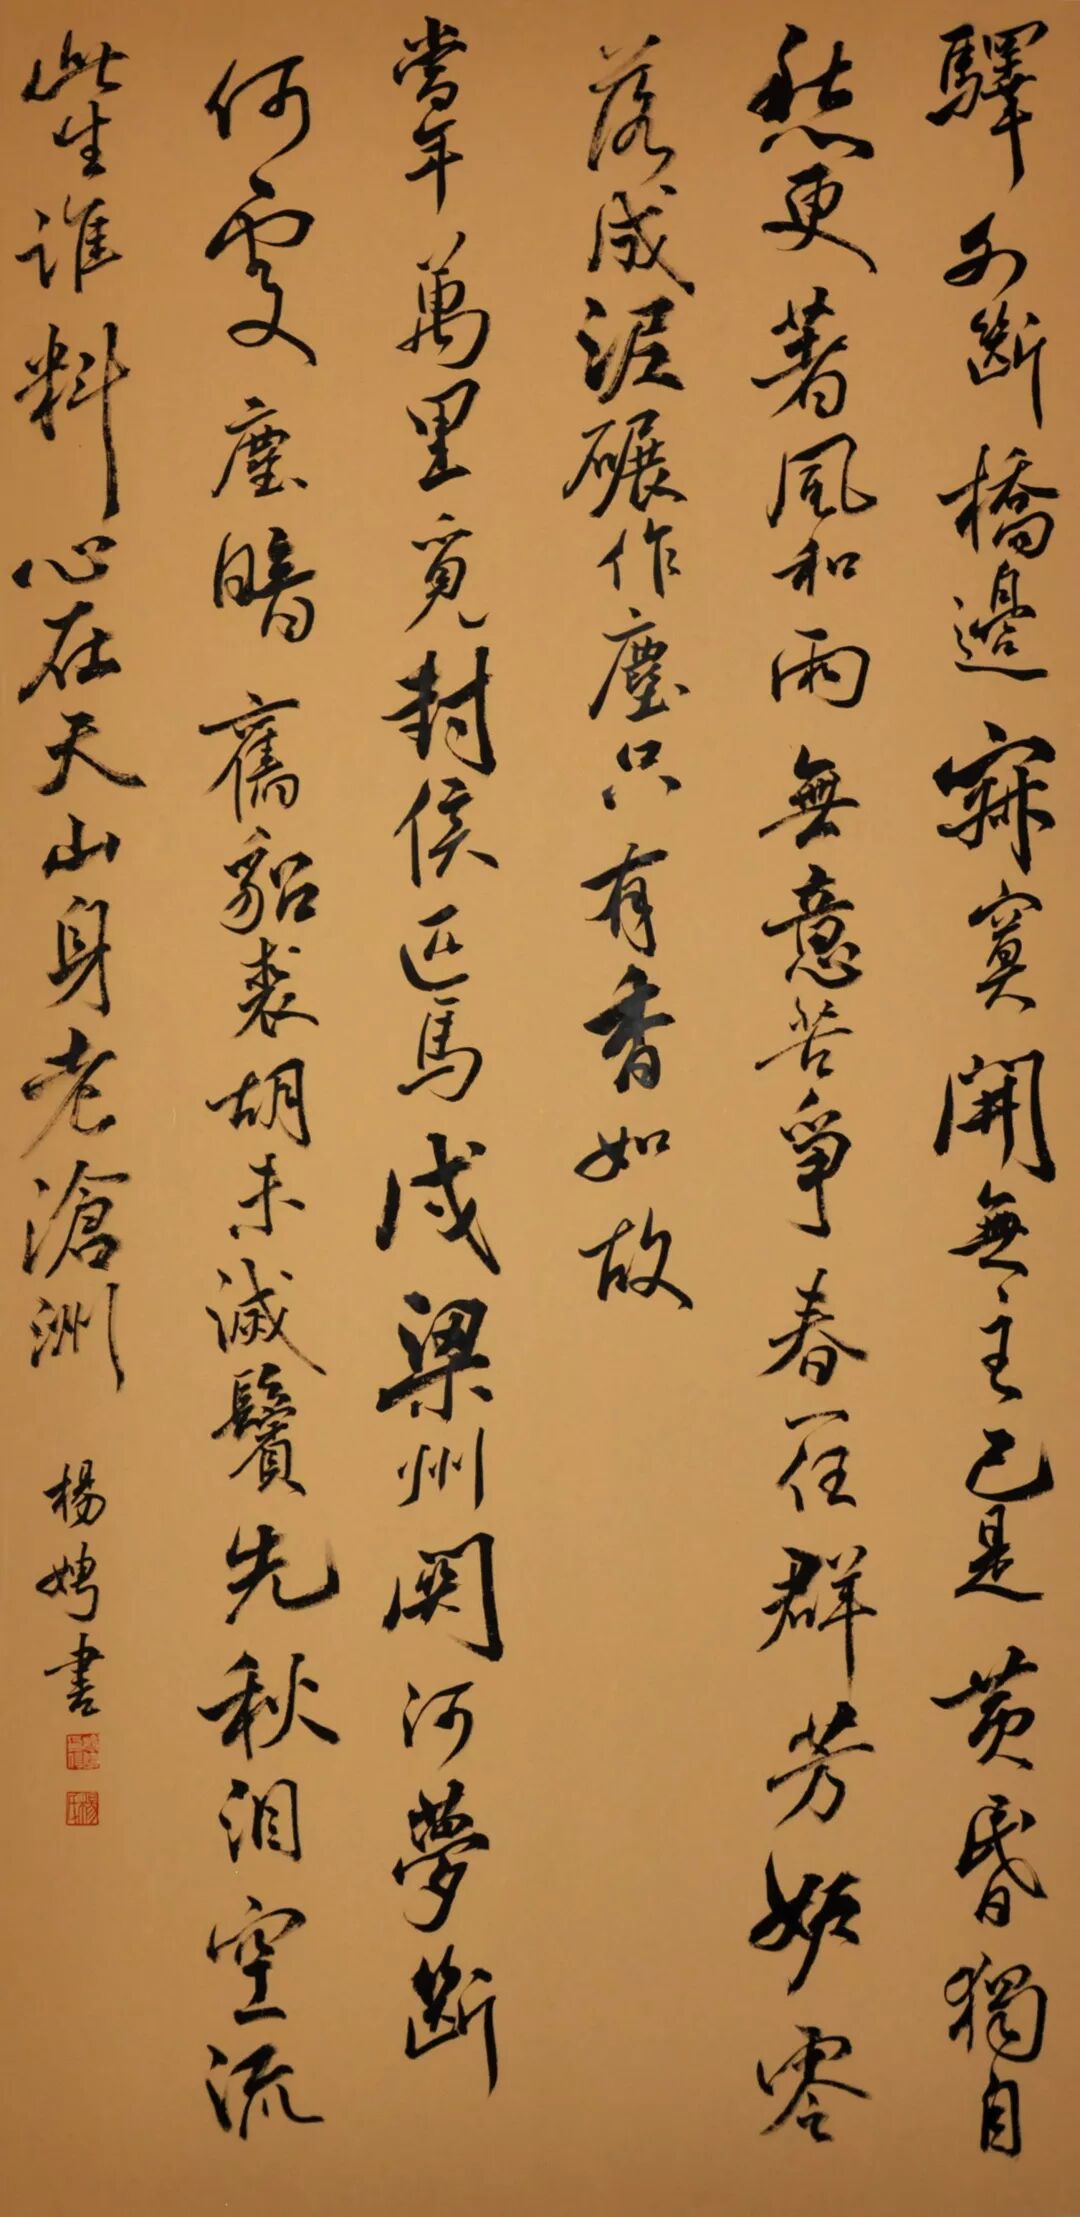 驛外斷橋邊寂寞開無主已是黃昏獨自
愁更著風和雨無意苦爭春一任群芳妒零
落成泥碾作塵只有香如故
當年萬里覓封侯匹馬戍梁州關河夢斷
何處塵暗舊貂裘胡未滅鬢先秋淚空流
此生誰料心在天山身老滄洲
楊娉書